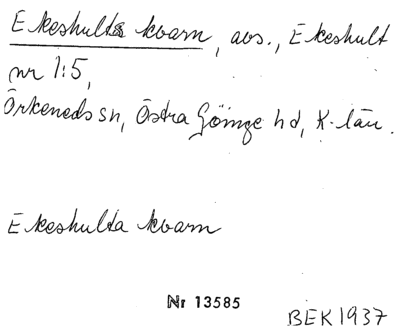 Ekeshults kvarn, avs., Ekeshult
nr 1:5,
Örkeneds sn, Östra Göinge hd, K-län.
Ekeshulta kvarn
Nr 13585
BEK 1937